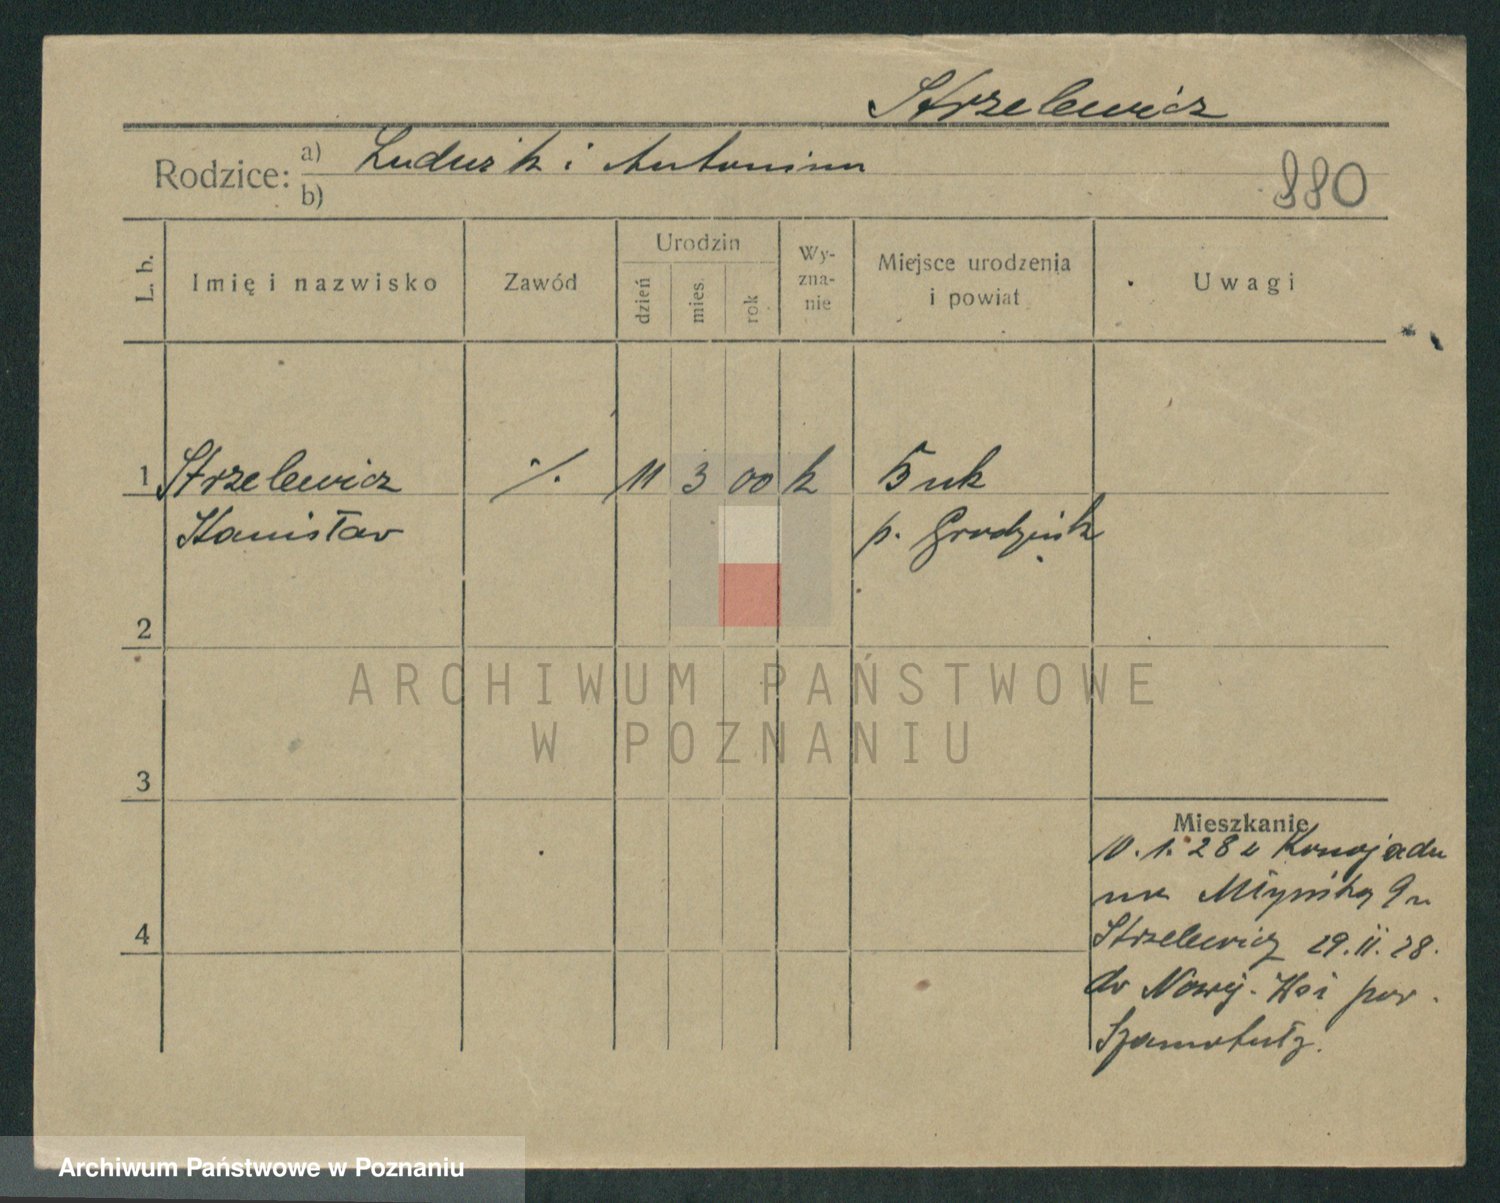 Strzelewicz
Rodzice: a) Ludwik i Antonina
b)
880
L. b.
Imię i nazwisko
Zawód
Urodzin
dzień
mies.
rok
Wy-
zna-
nie
Miejsce urodzenia
i powiat
Uwagi
1 Strzelewicz ./. 11 3 00 k Buk
Stanisław p. Grodzisk
2
ARCHIWUM PAŃSTWOWE
W POZNANIU
3
Mieszkanie
10. 1. 28 z Konojadu
na Młyńską 9
Strzelewicz 29. II. 28.
4
do Nowej-Wsi pow.
Szamotuły.
Archiwum Państwowe w Poznaniu